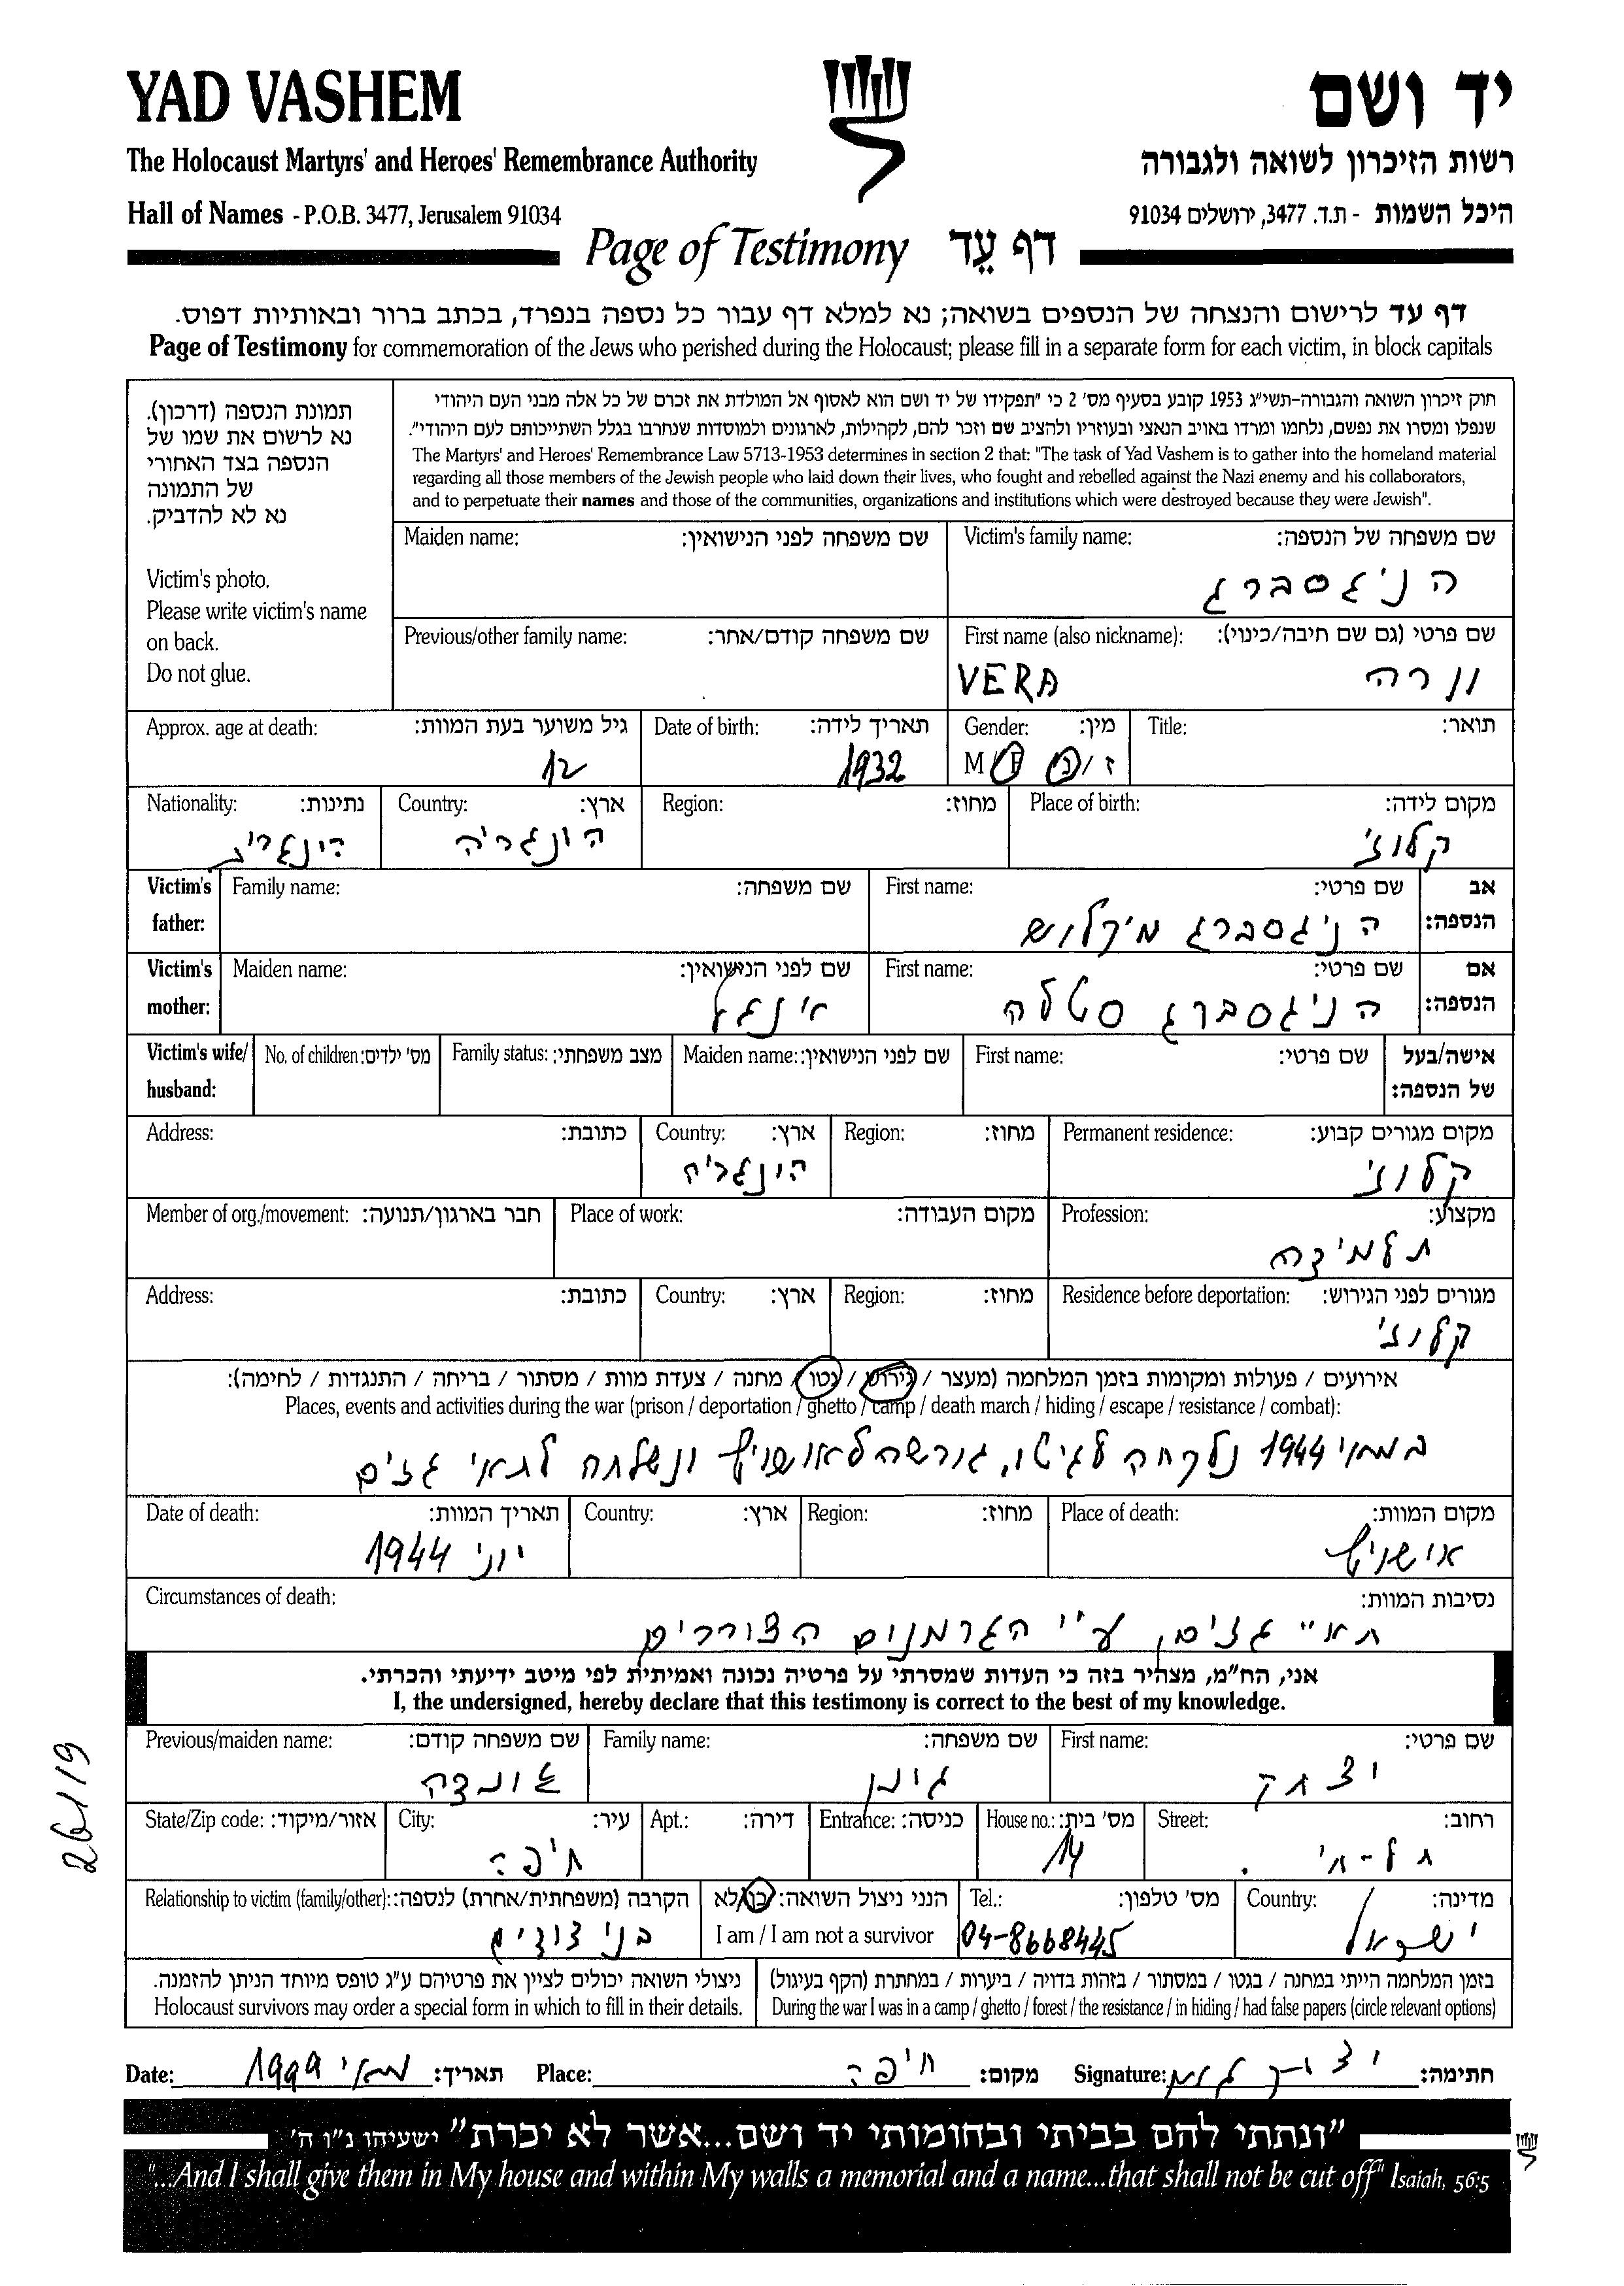 YAD VASHEM
יד ושם
The Holocaust Martyrs' and Heroes' Remembrance Authority
רשות הזיכרון לשואה ולגבורה
Hall of Names - P.O.B. 3477, Jerusalem 91034
היכל השמות - ת.ד. 3477, ירושלים 91034
Page of Testimony דף עֵד
דף עד לרישום והנצחה של הנספים בשואה; נא למלא דף עבור כל נספה בנפרד, בכתב ברור ובאותיות דפוס.
Page of Testimony for commemoration of the Jews who perished during the Holocaust; please fill in a separate form for each victim, in block capitals
תמונת הנספה (דרכון).
נא לרשום את שמו של
הנספה בצד האחורי
של התמונה
נא לא להדביק.
Victim's photo.
Please write victim's name
on back.
Do not glue.
חוק זיכרון השואה והגבורה-תשי"ג 1953 קובע בסעיף מס' 2 כי "תפקידו של יד ושם הוא לאסוף אל המולדת את זכרם של כל אלה מבני העם היהודי
שנפלו ומסרו את נפשם, נלחמו ומרדו באויב הנאצי ובעוזריו ולהציב שם וזכר להם, לקהילות, לארגונים ולמוסדות שנחרבו בגלל השתייכותם לעם היהודי".
The Martyrs' and Heroes' Remembrance Law 5713-1953 determines in section 2 that: "The task of Yad Vashem is to gather into the homeland material
regarding all those members of the Jewish people who laid down their lives, who fought and rebelled against the Nazi enemy and his collaborators,
and to perpetuate their names and those of the communities, organizations and institutions which were destroyed because they were Jewish".
Victim's family name: שם משפחה של הנספה:
הניגסברג
Maiden name: שם משפחה לפני הנישואין:
First name (also nickname): שם פרטי (גם שם חיבה/כינוי):
VERA ורה
Previous/other family name: שם משפחה קודם/אחר:
Title: תואר:
Gender: מין:
M / F ז / נ
Date of birth: תאריך לידה:
1932
Approx. age at death: גיל משוער בעת המוות:
12
Place of birth: מקום לידה:
קלוז'
Region: מחוז:
Country: ארץ:
הונגריה
Nationality: נתינות:
Victim's father: אב הנספה:
First name: שם פרטי:
הניגסברג מיקלוש
Family name: שם משפחה:
Victim's mother: אם הנספה:
First name: שם פרטי:
הניגסברג סטלה
Maiden name: שם לפני הנישואין:
Victim's wife/ husband: אישה/בעל של הנספה:
First name: שם פרטי:
Maiden name: שם לפני הנישואין:
Family status: מצב משפחתי:
No. of children: מס' ילדים:
Permanent residence: מקום מגורים קבוע:
קלוז'
Region: מחוז:
Country: ארץ:
הונגריה
Address: כתובת:
Profession: מקצוע:
תלמידה
Place of work: מקום העבודה:
Member of org./movement: חבר בארגון/תנועה:
Residence before deportation: מגורים לפני הגירוש:
קלוז'
Region: מחוז:
Country: ארץ:
Address: כתובת:
אירועים / פעולות ומקומות בזמן המלחמה (מעצר / גירוש / גטו / מחנה / צעדת מוות / מסתור / בריחה / התנגדות / לחימה):
Places, events and activities during the war (prison / deportation / ghetto / camp / death march / hiding / escape / resistance / combat):
במאי 1944 נלקחה לגיטו, גורשה לאושויץ ונשלחה לתאי גזים
Place of death: מקום המוות:
אושויץ
Region: מחוז:
Country: ארץ:
Date of death: תאריך המוות:
יוני 1944
Circumstances of death: נסיבות המוות:
תאי גזים, ע"י הגרמנים הצוררים
אני, הח"מ, מצהיר בזה כי העדות שמסרתי על פרטיה נכונה ואמיתית לפי מיטב ידיעתי והכרתי.
I, the undersigned, hereby declare that this testimony is correct to the best of my knowledge.
First name: שם פרטי:
יצחק
Family name: שם משפחה:
Previous/maiden name: שם משפחה קודם:
Street: רחוב:
תל-חי
House no.: מס' בית:
14
Entrance: כניסה:
Apt.: דירה:
City: עיר:
חיפה
State/Zip code: אזור/מיקוד:
Country: מדינה:
ישראל
Tel.: מס' טלפון:
04-8668445
הנני ניצול השואה: כן/לא
I am / I am not a survivor
Relationship to victim (family/other): הקרבה (משפחתית/אחרת) לנספה:
בני דודים
בזמן המלחמה הייתי במחנה / בגטו / במסתור / בזהות בדויה / ביערות / במחתרת (הקף בעיגול)
During the war I was in a camp / ghetto / forest / the resistance / in hiding / had false papers (circle relevant options)
ניצולי השואה יכולים לציין את פרטיהם ע"ג טופס מיוחד הניתן להזמנה.
Holocaust survivors may order a special form in which to fill in their details.
Signature: חתימה:
Place: מקום: חיפה
Date: תאריך: מאי 1999
"ונתתי להם בביתי ובחומותי יד ושם...אשר לא יכרת" ישעיהו נ"ו ה'
"...And I shall give them in My house and within My walls a memorial and a name...that shall not be cut off" Isaiah, 56:5